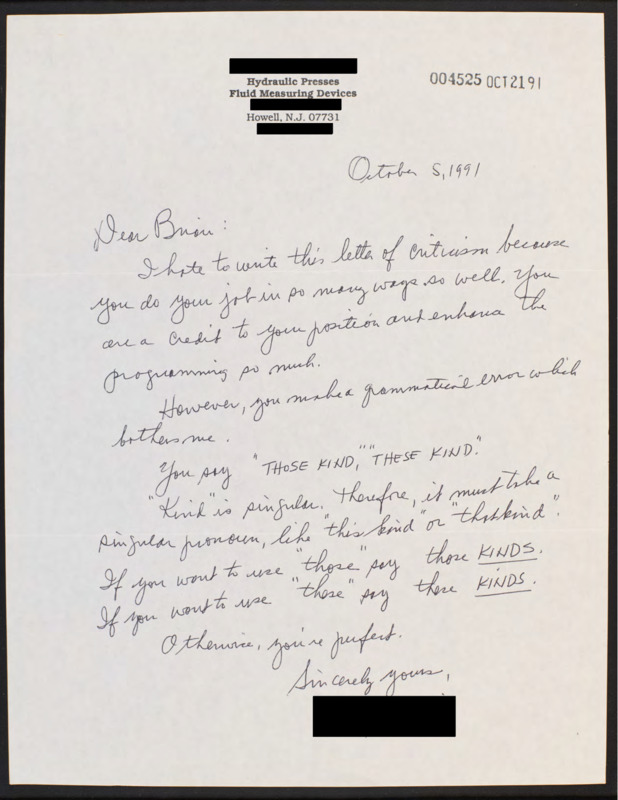 Hydraulic Presses
Fluid Measuring Devices
Howell, N.J. 07731
004525 OCT 21 91
October 5, 1991
Dear Brian:
I hate to write this letter of criticism because
you do your job in so many ways so well. You
are a credit to your position and enhance the
programming so much.
However, you make a grammatical error which
bothers me.
You say "THOSE KIND," "THESE KIND."
"Kind" is singular. Therefore, it must take a
singular pronoun, like "this kind" or "that kind".
If you want to use "those" say those KINDS.
If you want to use "these" say these KINDS.
Otherwise, you're perfect.
Sincerely yours,